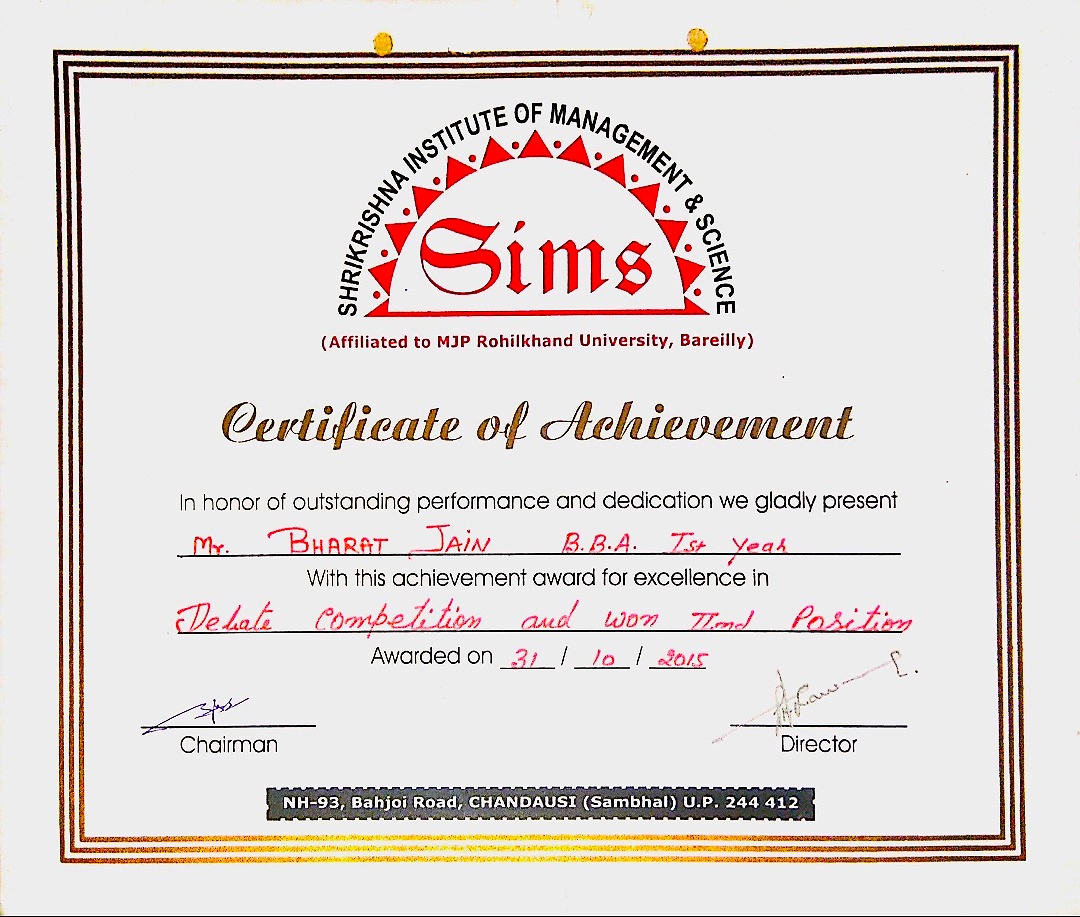 SHRIKRISHNA INSTITUTE OF MANAGEMENT & SCIENCE
Sims
(Affiliated to MJP Rohilkhand University, Bareilly)
Certificate of Achievement
In honor of outstanding performance and dedication we gladly present
Mr. BHARAT JAIN B.B.A. Ist year
With this achievement award for excellence in
Debate Competition and won IInd Position
Awarded on 31 / 10 / 2015
Chairman
Director
NH-93, Bahjoi Road, CHANDAUSI (Sambhal) U.P. 244 412